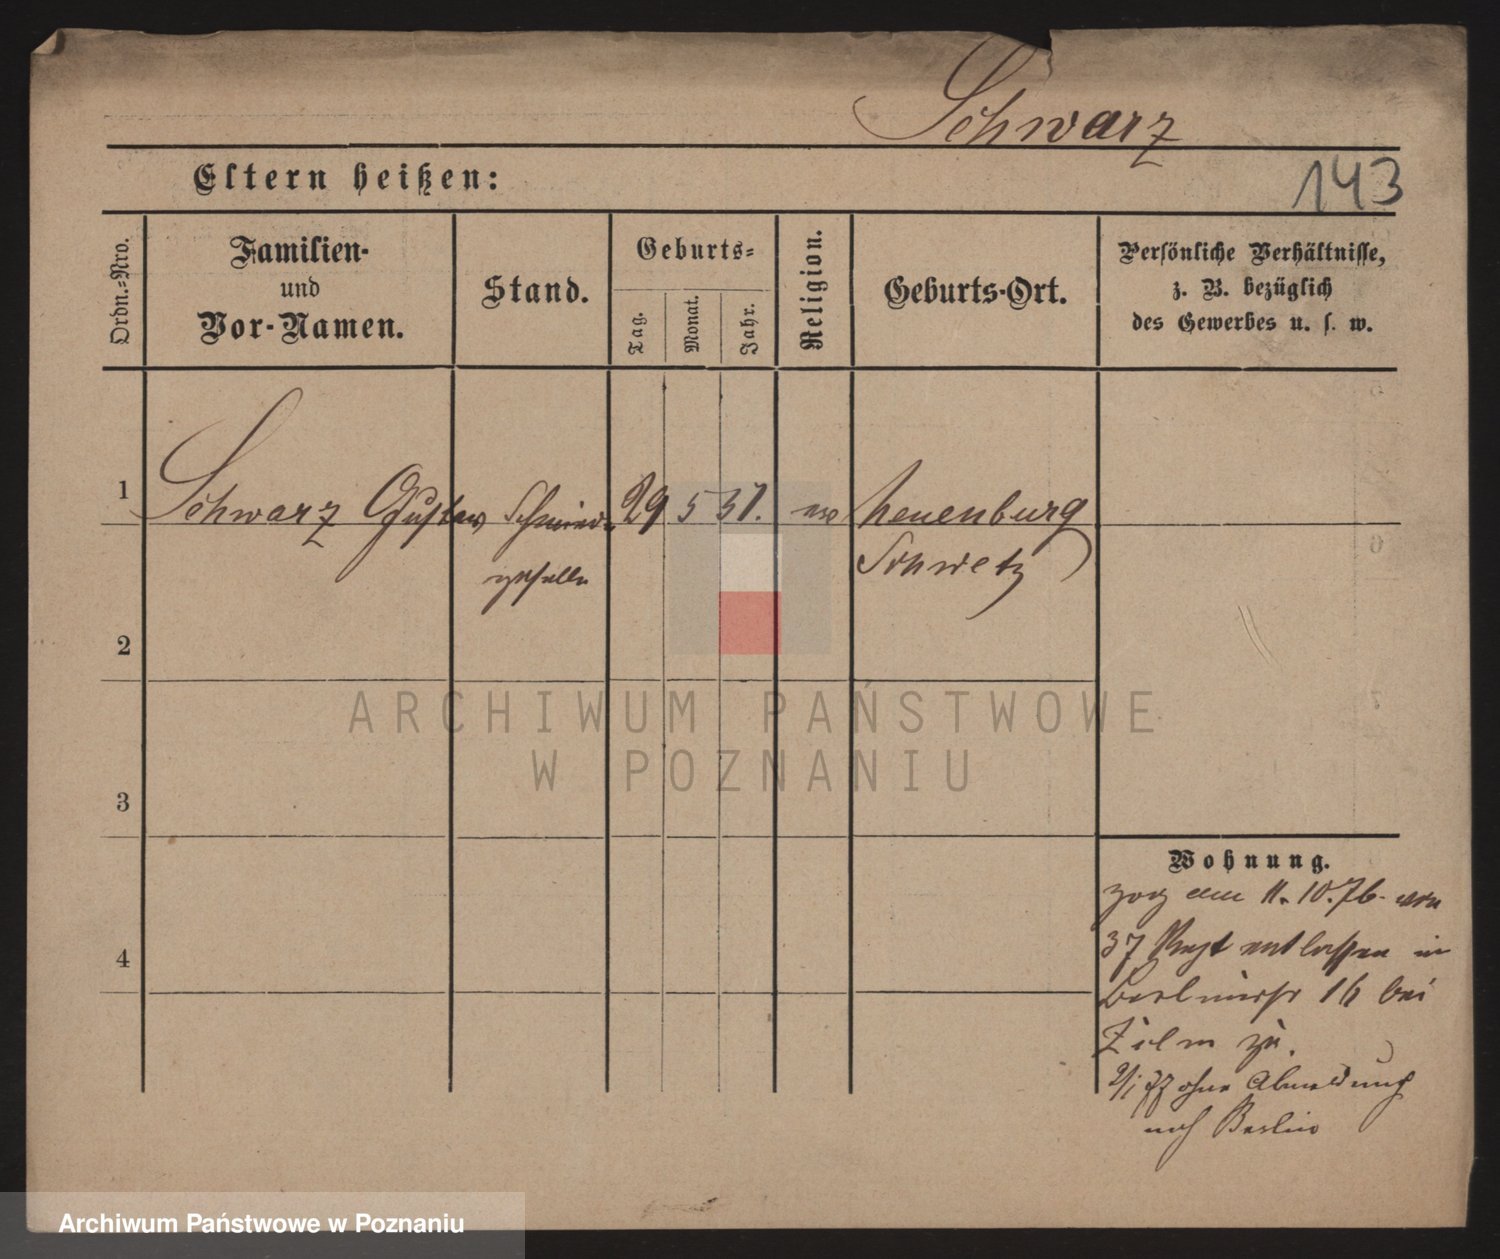 Schwarz
143
Eltern heißen:
Ordn.-Nro.
Familien-
und
Vor-Namen.
Stand.
Geburts-
Tag.
Monat.
Jahr.
Religion.
Geburts-Ort.
Persönliche Verhältnisse,
z. B. bezüglich
des Gewerbes u. s. w.
1 Schwarz Gustav Schmiede- 29 5 51. ev Neuenburg
geselle Schwetz
2
ARCHIWUM PAŃSTWOWE
W POZNANIU
3
Wohnung.
zog am 11.10.76. vom
37 Regt entlassen in
4
Berlinerstr 16 bei
Zilm zu.
2/1 77 ohne Abmeldung
nach Berlin
Archiwum Państwowe w Poznaniu